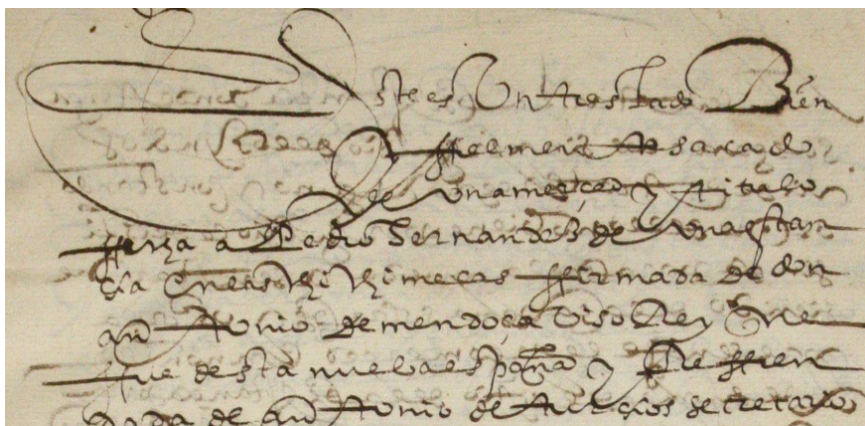 Este es Un treslado Bien
E ffielmente sacado
de Una merçed y titulo
ffecha a Pedro hernandez de Una estan
çia En las chichimecas ffirmada de don
anttonio de mendoça Viso Rey que
fue desta nueba españa y Reffren
dada de anttonio de turçios secretario